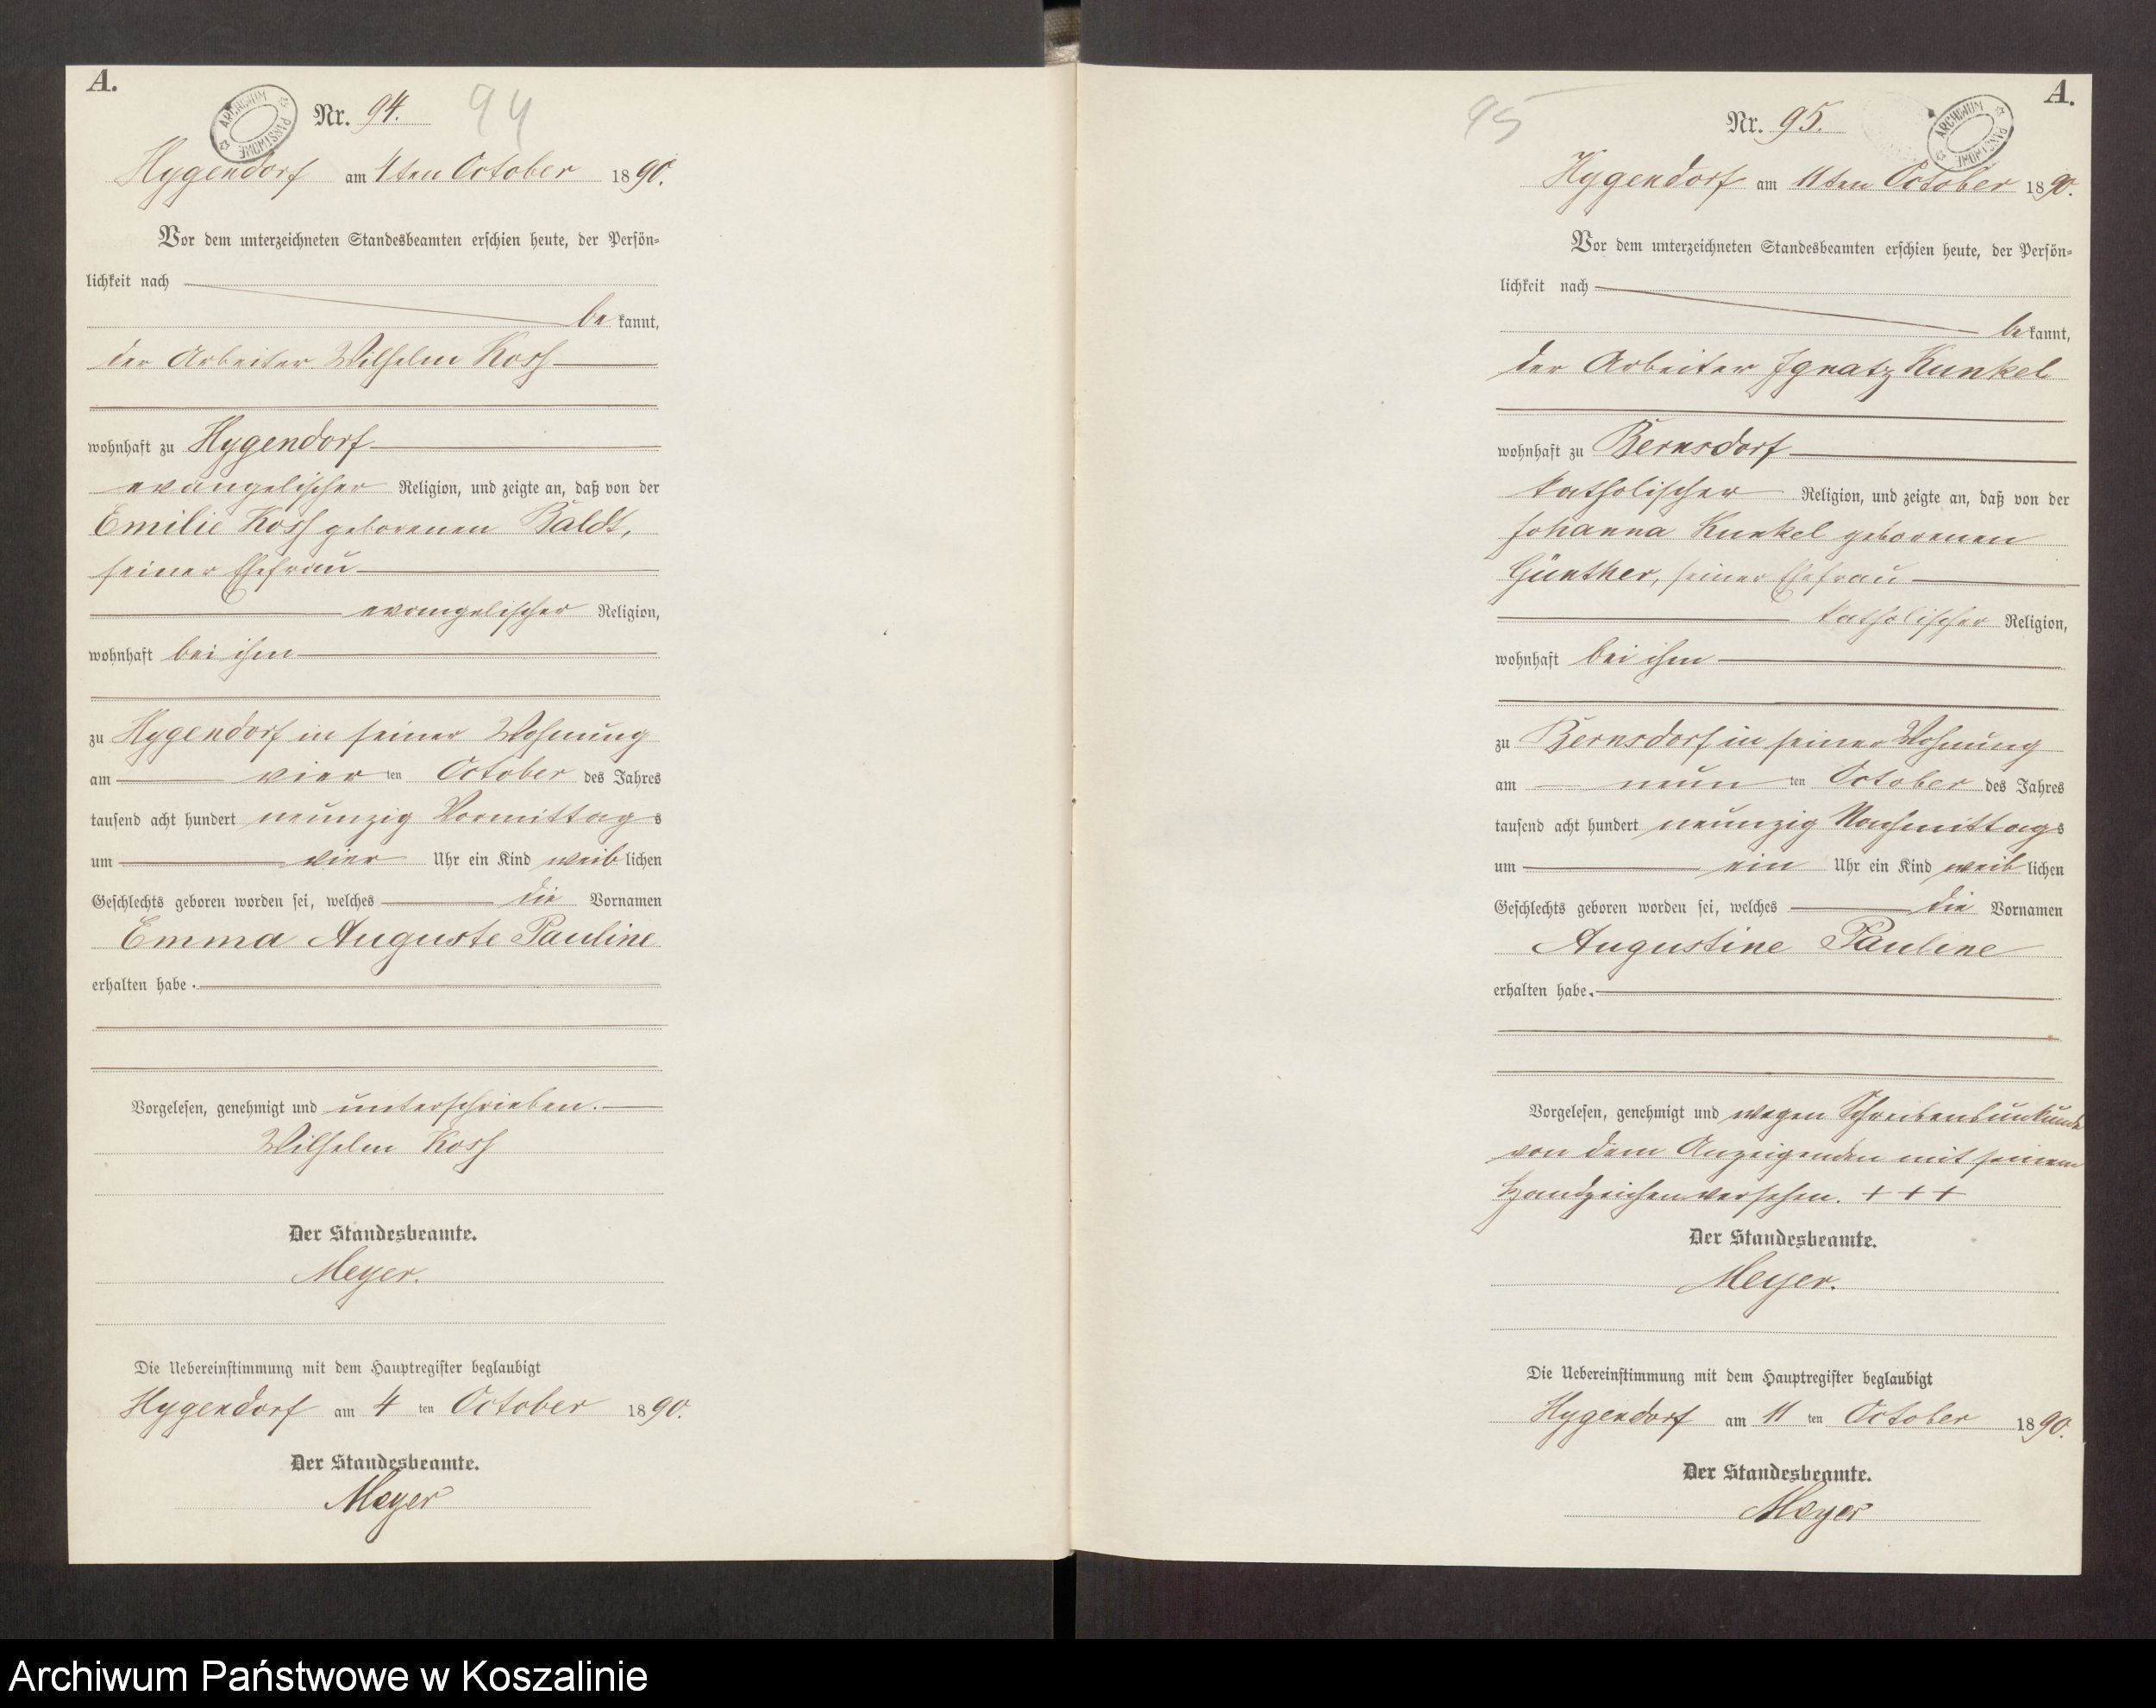 A.
ARCHIWUM PAŃSTWOWE
Nr. 94.
94
Hygendorf am 4ten October 1890.
Vor dem unterzeichneten Standesbeamten erschien heute, der Persön-
lichkeit nach
bekannt,
der Arbeiter Wilhelm Koss
wohnhaft zu Hygendorf
evangelischer Religion, und zeigte an, daß von der
Emilie Koss geborenen Baldt,
seiner Ehefrau
evangelischer Religion,
wohnhaft bei ihm
zu Hygendorf in seiner Wohnung
am vierten October des Jahres
tausend acht hundert neunzig Vormittags
um vier Uhr ein Kind weiblichen
Geschlechts geboren worden sei, welches die Vornamen
Emma Auguste Pauline
erhalten habe.
Vorgelesen, genehmigt und unterschrieben.
Wilhelm Koss
Der Standesbeamte.
Meyer.
Die Uebereinstimmung mit dem Hauptregister beglaubigt
Hygendorf am 4ten October 1890.
Der Standesbeamte.
Meyer
A.
95
Nr. 95.
ARCHIWUM PAŃSTWOWE
Hygendorf am 11ten October 1890.
Vor dem unterzeichneten Standesbeamten erschien heute, der Persön-
lichkeit nach
bekannt,
der Arbeiter Ignatz Kunkel
wohnhaft zu Bernsdorf
katholischer Religion, und zeigte an, daß von der
Johanna Kunkel geborenen
Günther, seiner Ehefrau
katholischer Religion,
wohnhaft bei ihm
zu Bernsdorf in seiner Wohnung
am neunten October des Jahres
tausend acht hundert neunzig Nachmittags
um ein Uhr ein Kind weiblichen
Geschlechts geboren worden sei, welches die Vornamen
Augustine Pauline
erhalten habe.
Vorgelesen, genehmigt und wegen Schreibensunkunde
von dem Anzeigenden mit seinem
Handzeichen versehen. + + +
Der Standesbeamte.
Meyer.
Die Uebereinstimmung mit dem Hauptregister beglaubigt
Hygendorf am 11ten October 1890.
Der Standesbeamte.
Meyer
Archiwum Państwowe w Koszalinie